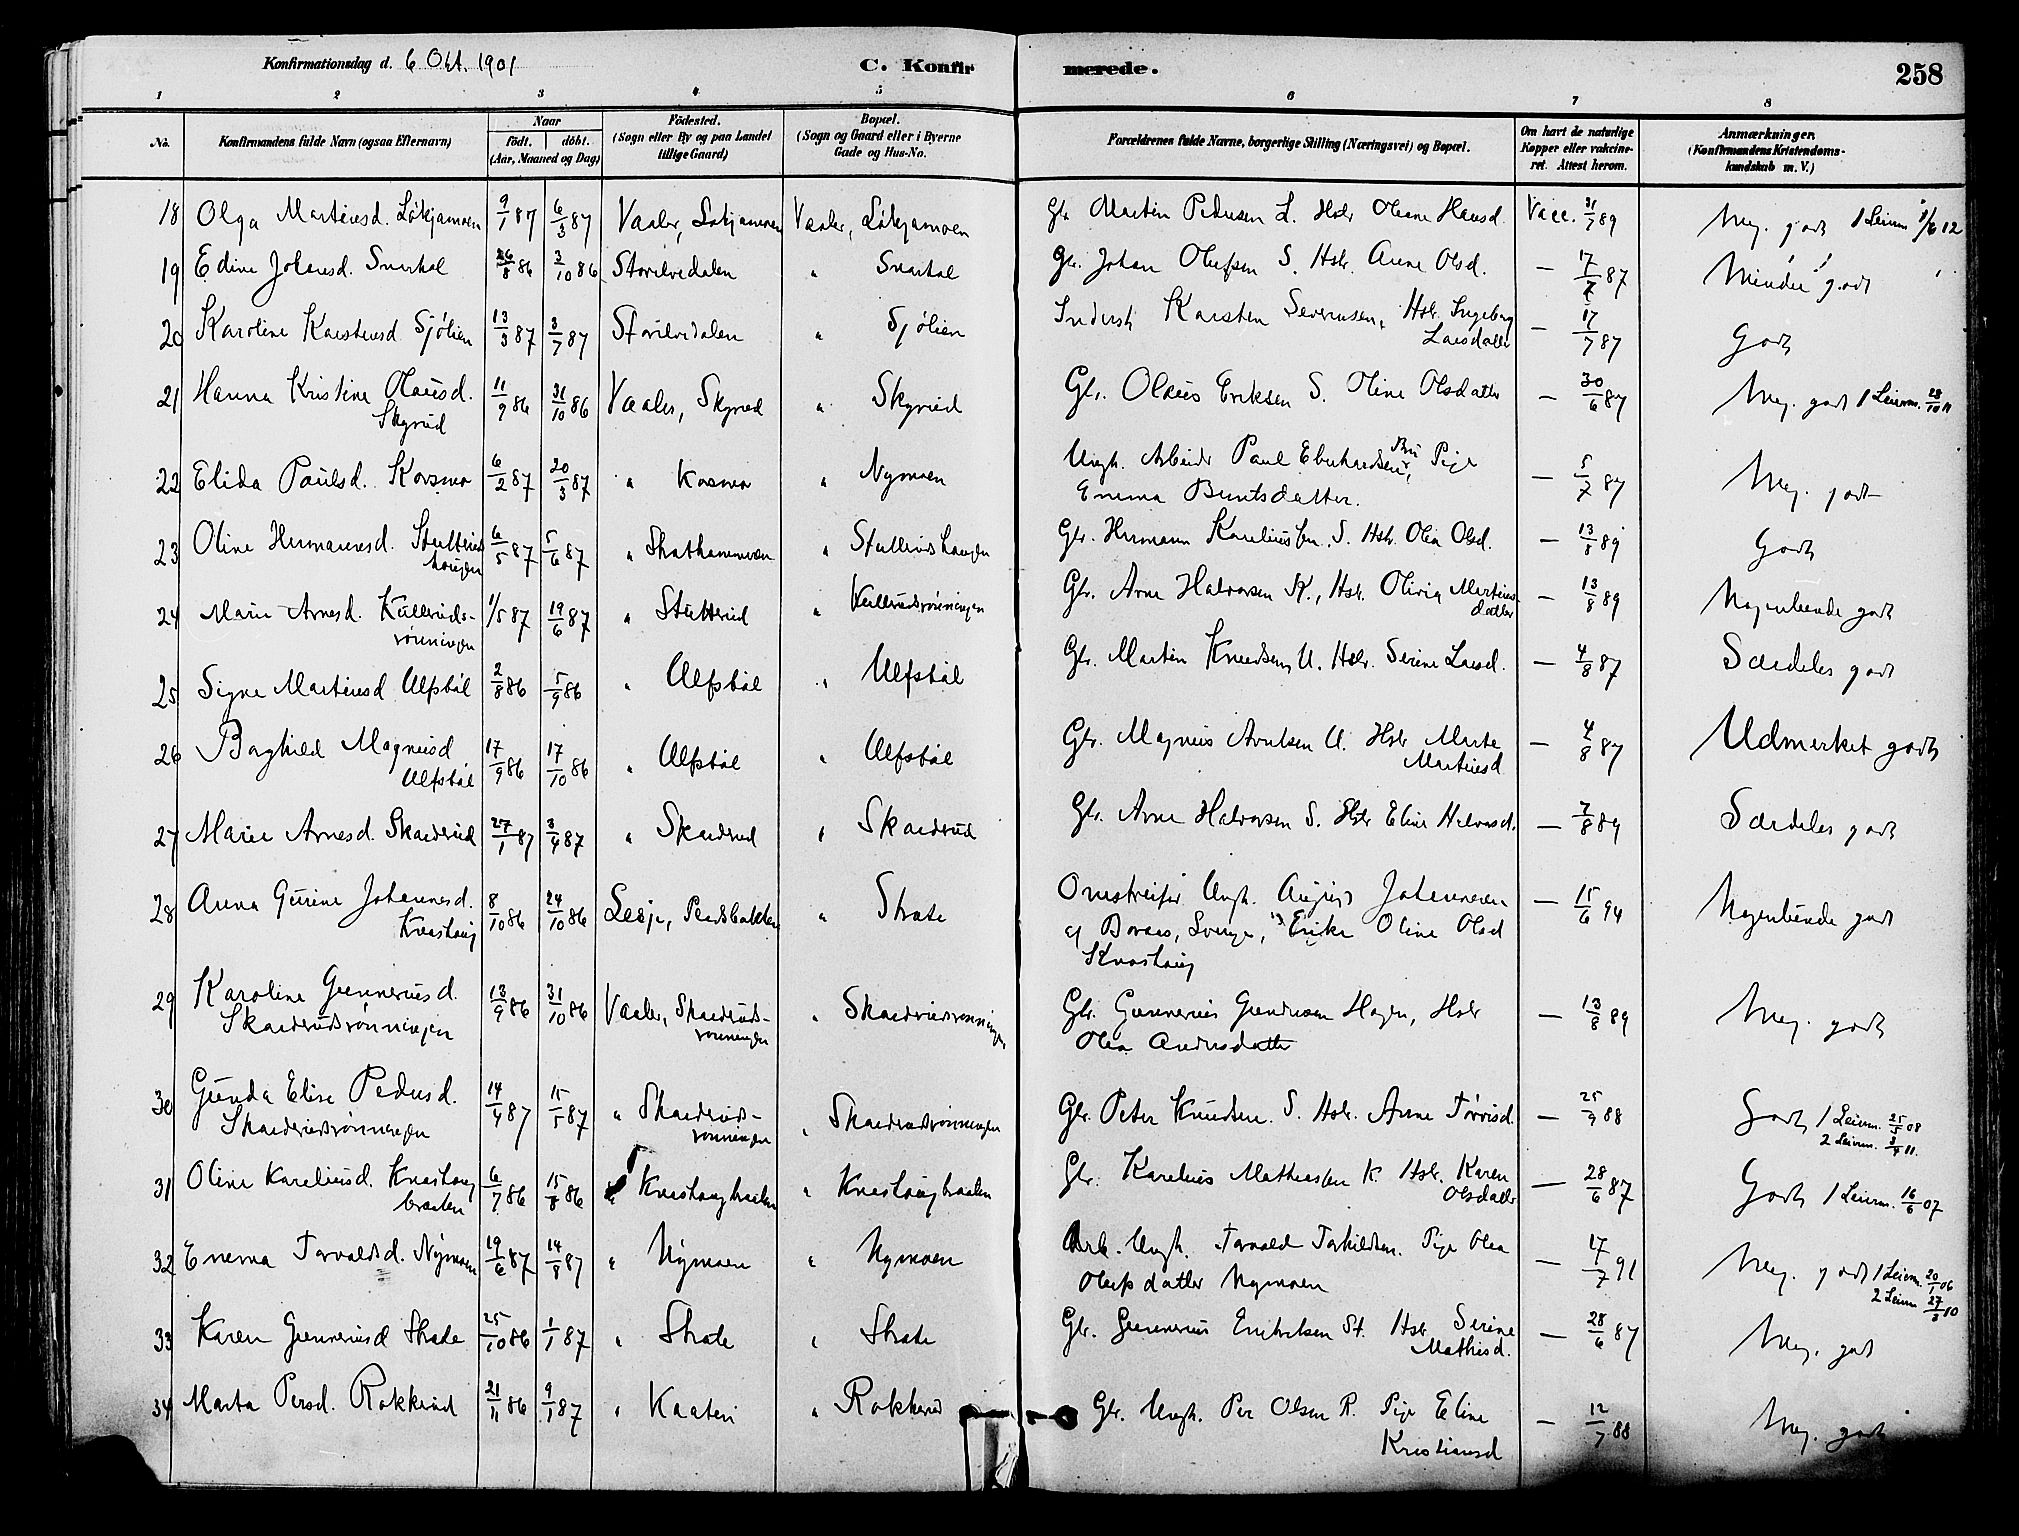 Konfirmationsdag d. 6 Okt. 1901 C. Konfirmerede. 258
1 2 3 4 5 6 7 8
No. Konfirmandens fulde Navn (ogsaa Efternavn) Naar födt. döbt. (Aar, Maaned og Dag) Födested. (Sogn eller By og paa Landet tillige Gaard) Bopæl. (Sogn og Gaard eller i Byerne Gade og Hus-No. Forældrenes fulde Navne, borgerlige Stilling (Næringsvei) og Bopæl. Om havt de naturlige Kopper eller vaccineret. Attest herom. Anmærkninger. (Konfirmandens Kristendomskundskab m. V.)
18 Olga Martinesd. Løkjamoen 9/1 87 6/3 87 Vaaler, Løkjamoen Vaaler, Løkjamoen Gbr. Martin Pedersen L. Hstr. Oleane Hansd. Vacc. 31/7 89 Meg. godt 1 Leierm. 1/6 12
19 Edine Johansd. Snarhol 26/8 86 3/10 86 Storelvedalen " Snarhol Gbr. Johan Olufsen S. Hstr. Anne Olsd. — 17/7 87 Mindre godt
20 Karoline Karstensd. Sjølien 13/3 87 3/7 87 Storelvedalen " Sjølien Inderst Karsten Severinsen, Hstr. Ingeborg
Larsdatter — 17/7 87 Godt
21 Hanna Kristine Olausd.
Skyrud 11/9 86 31/10 86 Vaaler, Skyrud " Skyrud Gbr. Olaus Eriksen S. Oline Olsdatter — 30/6 87 Meg. godt 1 Leierm. 28/10 11
22 Elida Paulsd. Kosmo 6/2 87 20/3 87 " Kosmo " Nymoen Ungk. Arbeider Paul Eberhardsen, Pige
Emma Berntsdatter. — 5/7 87 Meg. godt
23 Oline Hermansd. Stutterudhaugen 6/5 87 5/6 87 " " Stutterudshaugen Gbr. Herman Kareliussen S. Hstr. Olea Olsd. — 13/8 89 Godt
24 Marie Arnesd. Kullerudsrønningen 1/5 87 19/6 87 " Stutterud " Kullerudsrønningen Gbr. Arne Halvorsen K., Hstr. Olivia Martinusdatter — 13/8 89 Nogenlunde godt
25 Signe Martinsd Ulfsbøl 2/8 86 5/9 86 " Ulfsbøl " Ulfsbøl Gbr. Martin Knudsen U. Hstr. Serine Larsd. — 4/8 87 Særdeles godt
26 Borghild Magnusd
Ulfsbøl 17/9 86 17/10 86 " Ulfsbøl " Ulfsbøl Gbr. Magnus Arntsen U. Hstr Marte
Martinsd — 4/8 87 Udmerket godt
27 Marie Arnesd. Skarderud 27/1 87 3/4 87 " Skarderud " Skarderud Gbr. Arne Halvorsen S. Hstr Eline Halvorsd. — 7/8 89 Særdeles godt
28 Anna Gurine Johannesd.
Knashaug 8/10 86 24/10 86 Lesje, " Strate Omstreifer Ungk. August Johannesen
af Boraas, Sverige, Erika Oline Olsd
Knashaug — 15/6 94 Nogenlunde godt
29 Karoline Gunneriusd.
Skarderudsrønningen 13/9 86 31/10 86 Vaaler, Skarderudsrønningen " Skarderudsrønningen Gbr. Gunnerius Gundersen Hagen, Hstr
Olea Andersdatter — 13/8 89 Meg. godt
30 Gunda Elise Pedersd.
Skarderudsrønningen 14/4 87 15/5 87 " Skarderudsrønningen " Skarderudsrønningen Gbr. Peter Knudsen S. Hstr. Anne Tørrisd. — 25/9 88 Godt 1 Leierm. 25/5 08
2 Leierm. 3/4 11.
31 Oline Kareliusd. Knashaugbraaten 6/7 86 15/8 86 " Knashaugbraaten " Knashaugbraaten Gbr. Karelius Mathiassen K. Hstr. Karen
Olsdatter — 28/6 87 Godt 1 Leierm. 16/6 07
32 Emma Torvaldsd. Nymoen 19/6 87 14/8 87 " Nymoen " Nymoen Arb. Ungk. Torvald Torkildsen. Pige Olea
Olufsdatter Nymoen — 17/7 91 Meg. godt 1 Leierm. 20/1 06
2 Leierm 27/3 10
33 Karen Gunneriusd Strate 25/10 86 1/1 87 " Strate " Strate Gbr. Gunnerius Eriksen St. Hstr. Serine
Mathisd. — 28/6 87 Meg. godt
34 Marta Persd. Rokkerud 21/11 86 9/1 87 " Kaateri " Rokkerud Gbr. Ungk. Per Olsen R. Pige Eline
Kristiansd — 12/7 88 Meg. godt